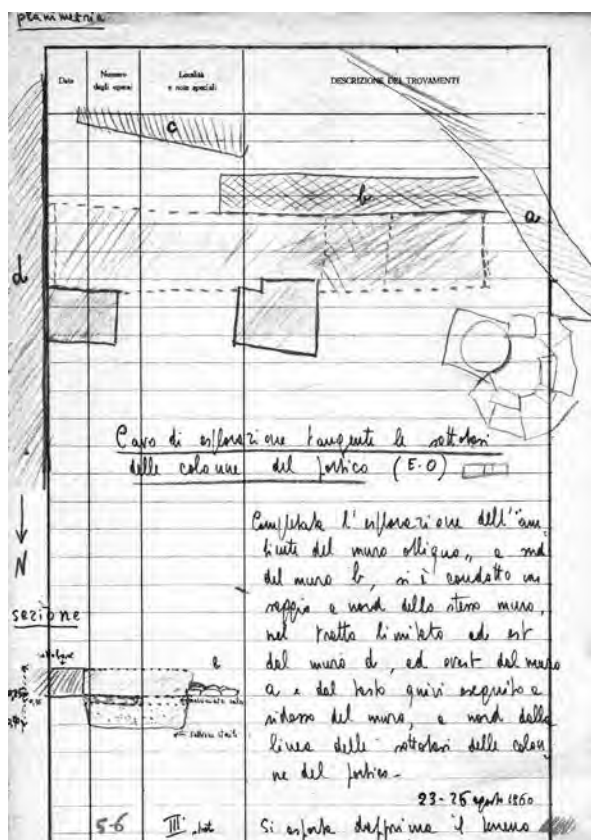 planimetria
Data
Numero
degli operai
Località
e note speciali
DESCRIZIONE DEL TROVAMENTI
c
b
a
d
Cavo di esplorazione tangente le sottobasi
delle colonne del portico (E-O)
N
Completata l'esplorazione dell'"am
biente del muro obliquo,, a sud
del muro b, si è condotto un
saggio a nord dello stesso muro,
nel tratto limitato ad est
dal muro d, ad ovest dal muro
a e dal tasto quivi eseguito a
ridosso del muro, a nord dalla
linea delle sottobasi delle colon
ne del portico -
sezione
sottobase
e
23-26 agosto 1960
5-6
III strat
Si asporta dapprima il terreno